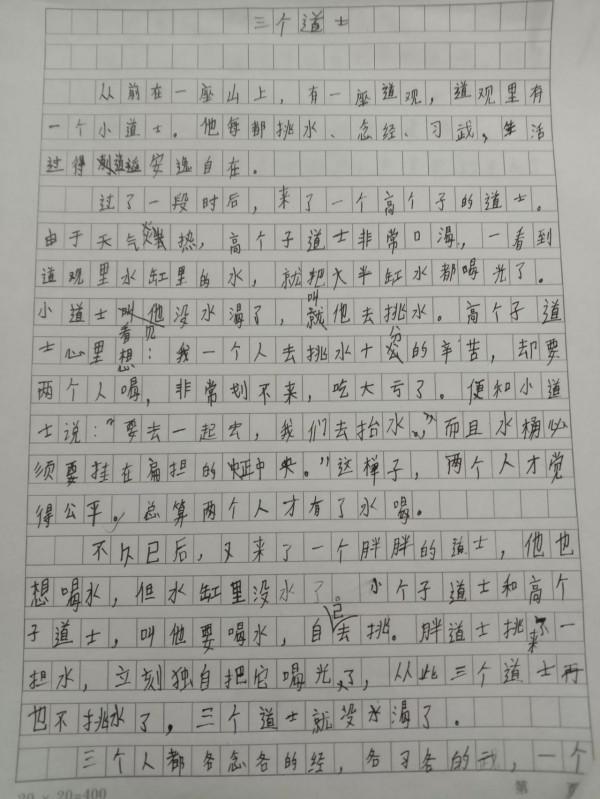 三个道士
从前在一座山上，有一座道观，道观里有
一个小道士。他每都挑水、念经、习武，生活
过得安逸自在。
过了一段时后，来了一个高个子的道士。
由于天气炎热，高个子道士非常口渴，一看到
道观里水缸里的水，就把大半缸水都喝光了。
小道士看见没水渴了，叫他去挑水。高个子道
士心里想：我一个人去挑水十分的辛苦，却要
两个人喝，非常划不来，吃大亏了。便和小道
士说：“要去一起去，我们去抬水，”而且水桶必
须要挂在扁担的中央。”这样子，两个人才觉
得公平。总算两个人才有了水喝。
不久已后，又来了一个胖胖的道士，他也
想喝水，但水缸里没水了。小个子道士和高个
子道士，叫他要喝水，自己去挑。胖道士挑来一
担水，立刻独自把它喝光了，从此三个道士再
也不挑水了，三个道士就没水渴了。
三个人都各念各的经，各习各的武，一个
20×20=400
第 页